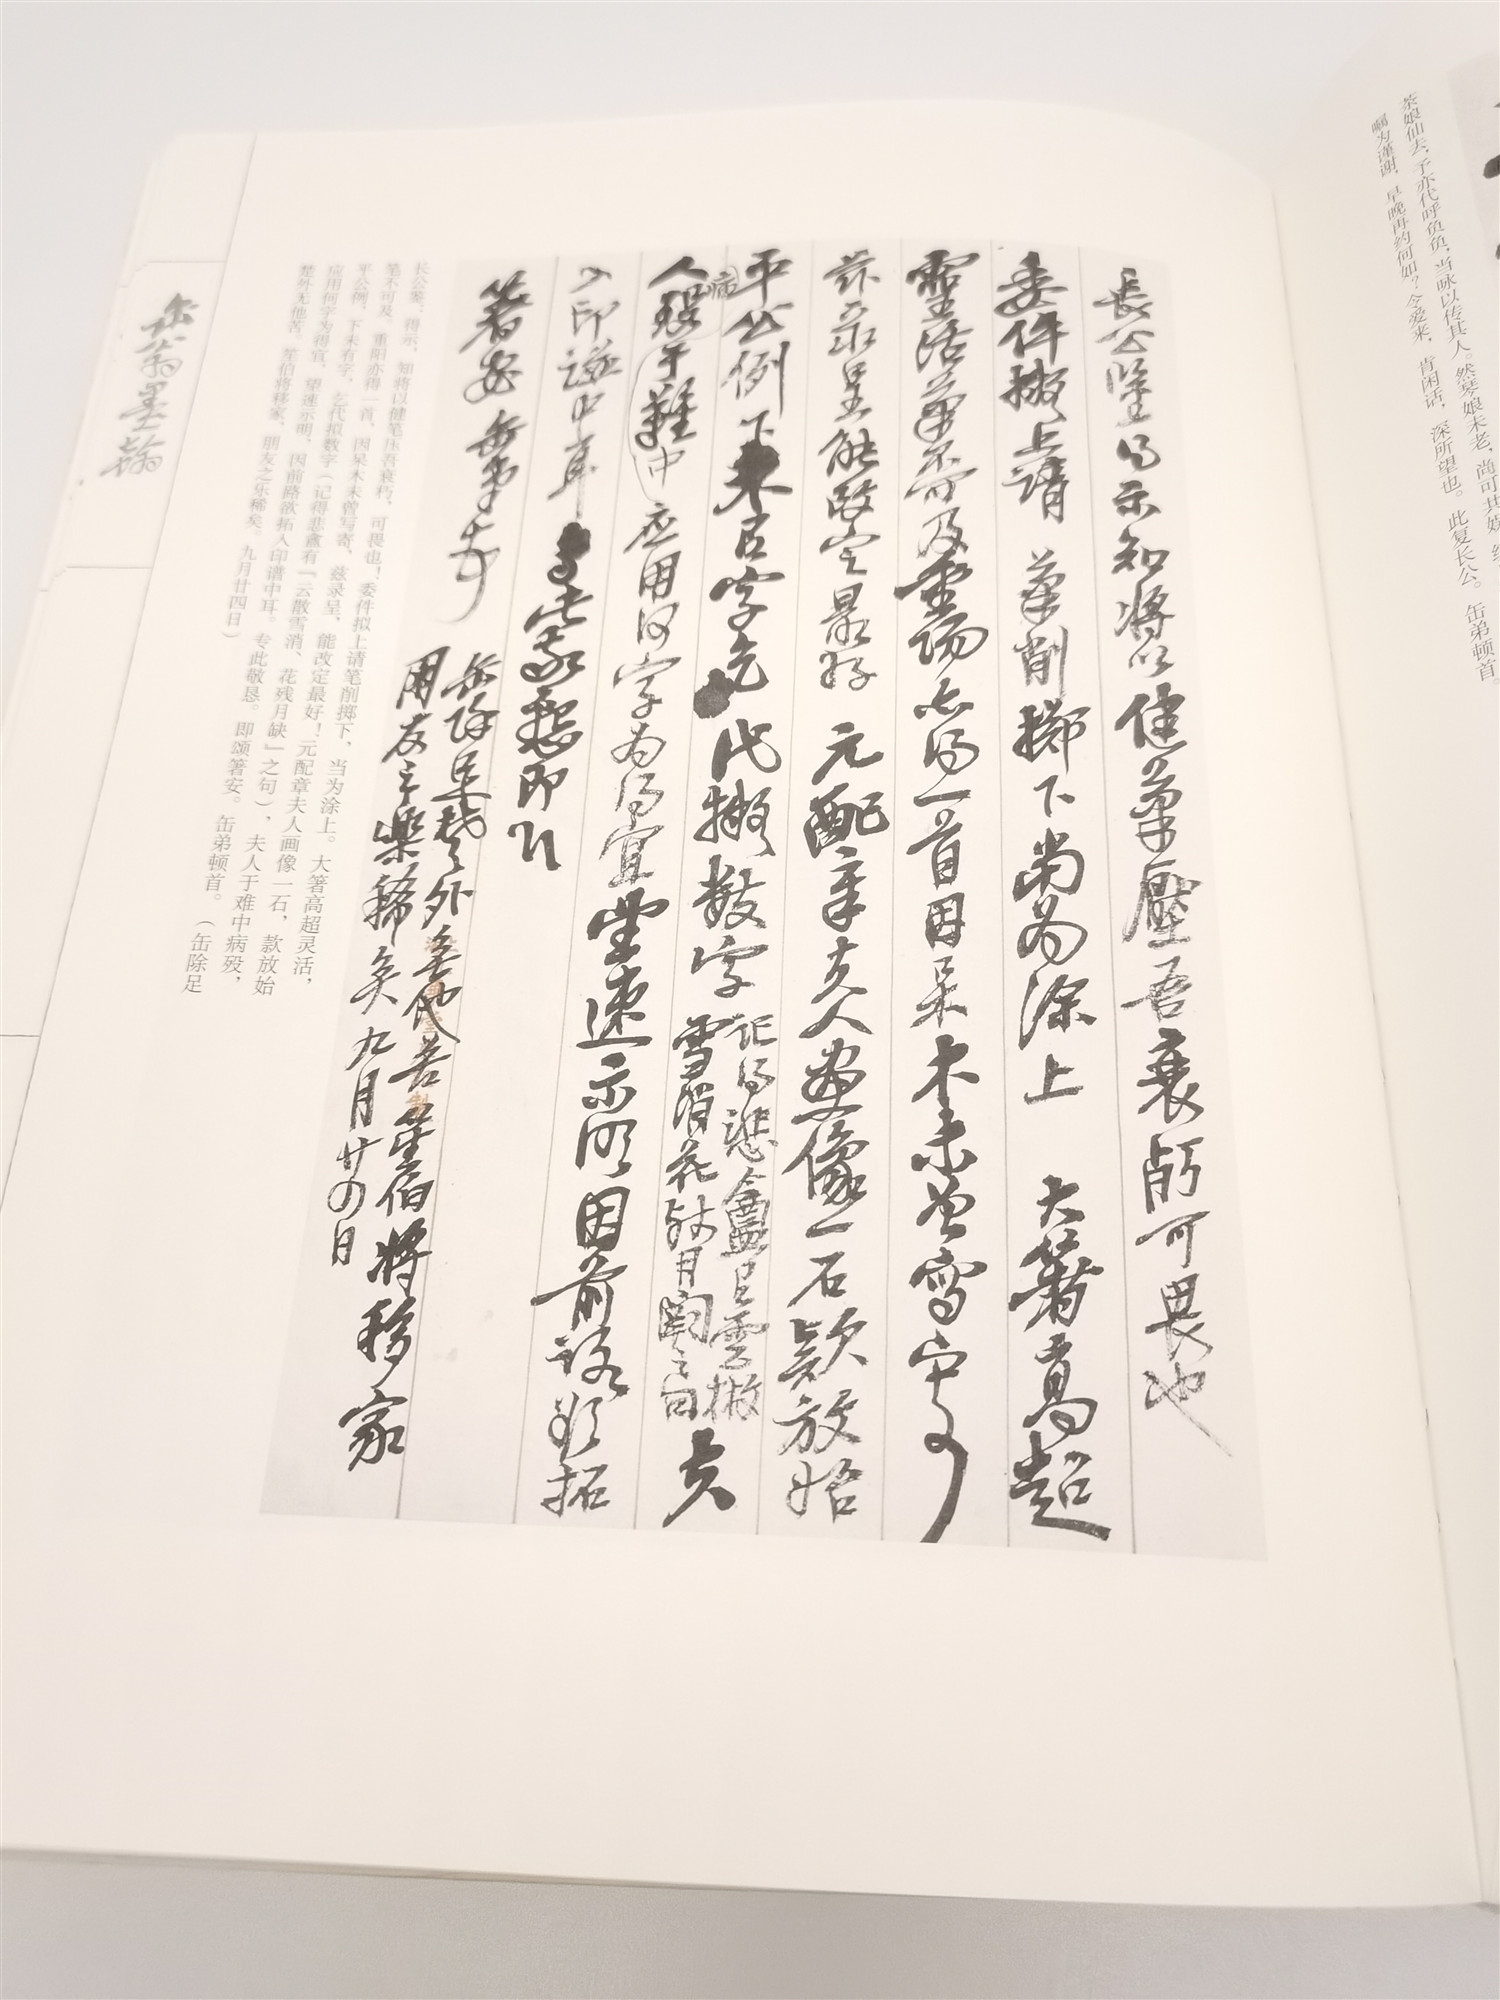 茶娘仙去，予亦代呼负负，当咏以传其人。然琴娘未老，尚可共娱
嘱为谨谢，早晚再约何如？令爱来，肯闲话，深所望也。此复长公。缶弟顿首。
長公鑒得示知將以健筆壓吾衰朽可畏也
委件擬上請筆削擲下當為塗上大箸高超
靈活筆不可及重陽亦得一首因呆木未曾寫寄
兹录呈能改定最好元配章夫人畫像一石款放始
平公例下未有字乞代擬數字記得悲盦有雲散
雪消花殘月闕之句夫
人病殁于難中应用何字為得宜望速示明因前路欲拓
入印谱中耳专此敬懇即頌
箸安缶弟頓首
缶除足楚外無他苦笙伯將移家
朋友之樂稀矣九月廿四日
长公鉴：得示，知将以健笔压吾衰朽，可畏也！委件拟上请笔削掷下，当为涂上。大箸高超灵活，
笔不可及，重阳亦得一首，因呆木未曾写寄，兹录呈，能改定最好！元配章夫人画像一石，款放始
平公例，下未有字，乞代拟数字（记得悲盦有「云散雪消、花残月缺」之句），夫人于难中病殁，
应用何字为得宜，望速示明，因前路欲拓入印谱中耳。专此敬恳。即颂箸安。缶弟顿首。（缶除足
楚外无他苦，笙伯将移家，朋友之乐稀矣。九月廿四日）
缶翁墨翰